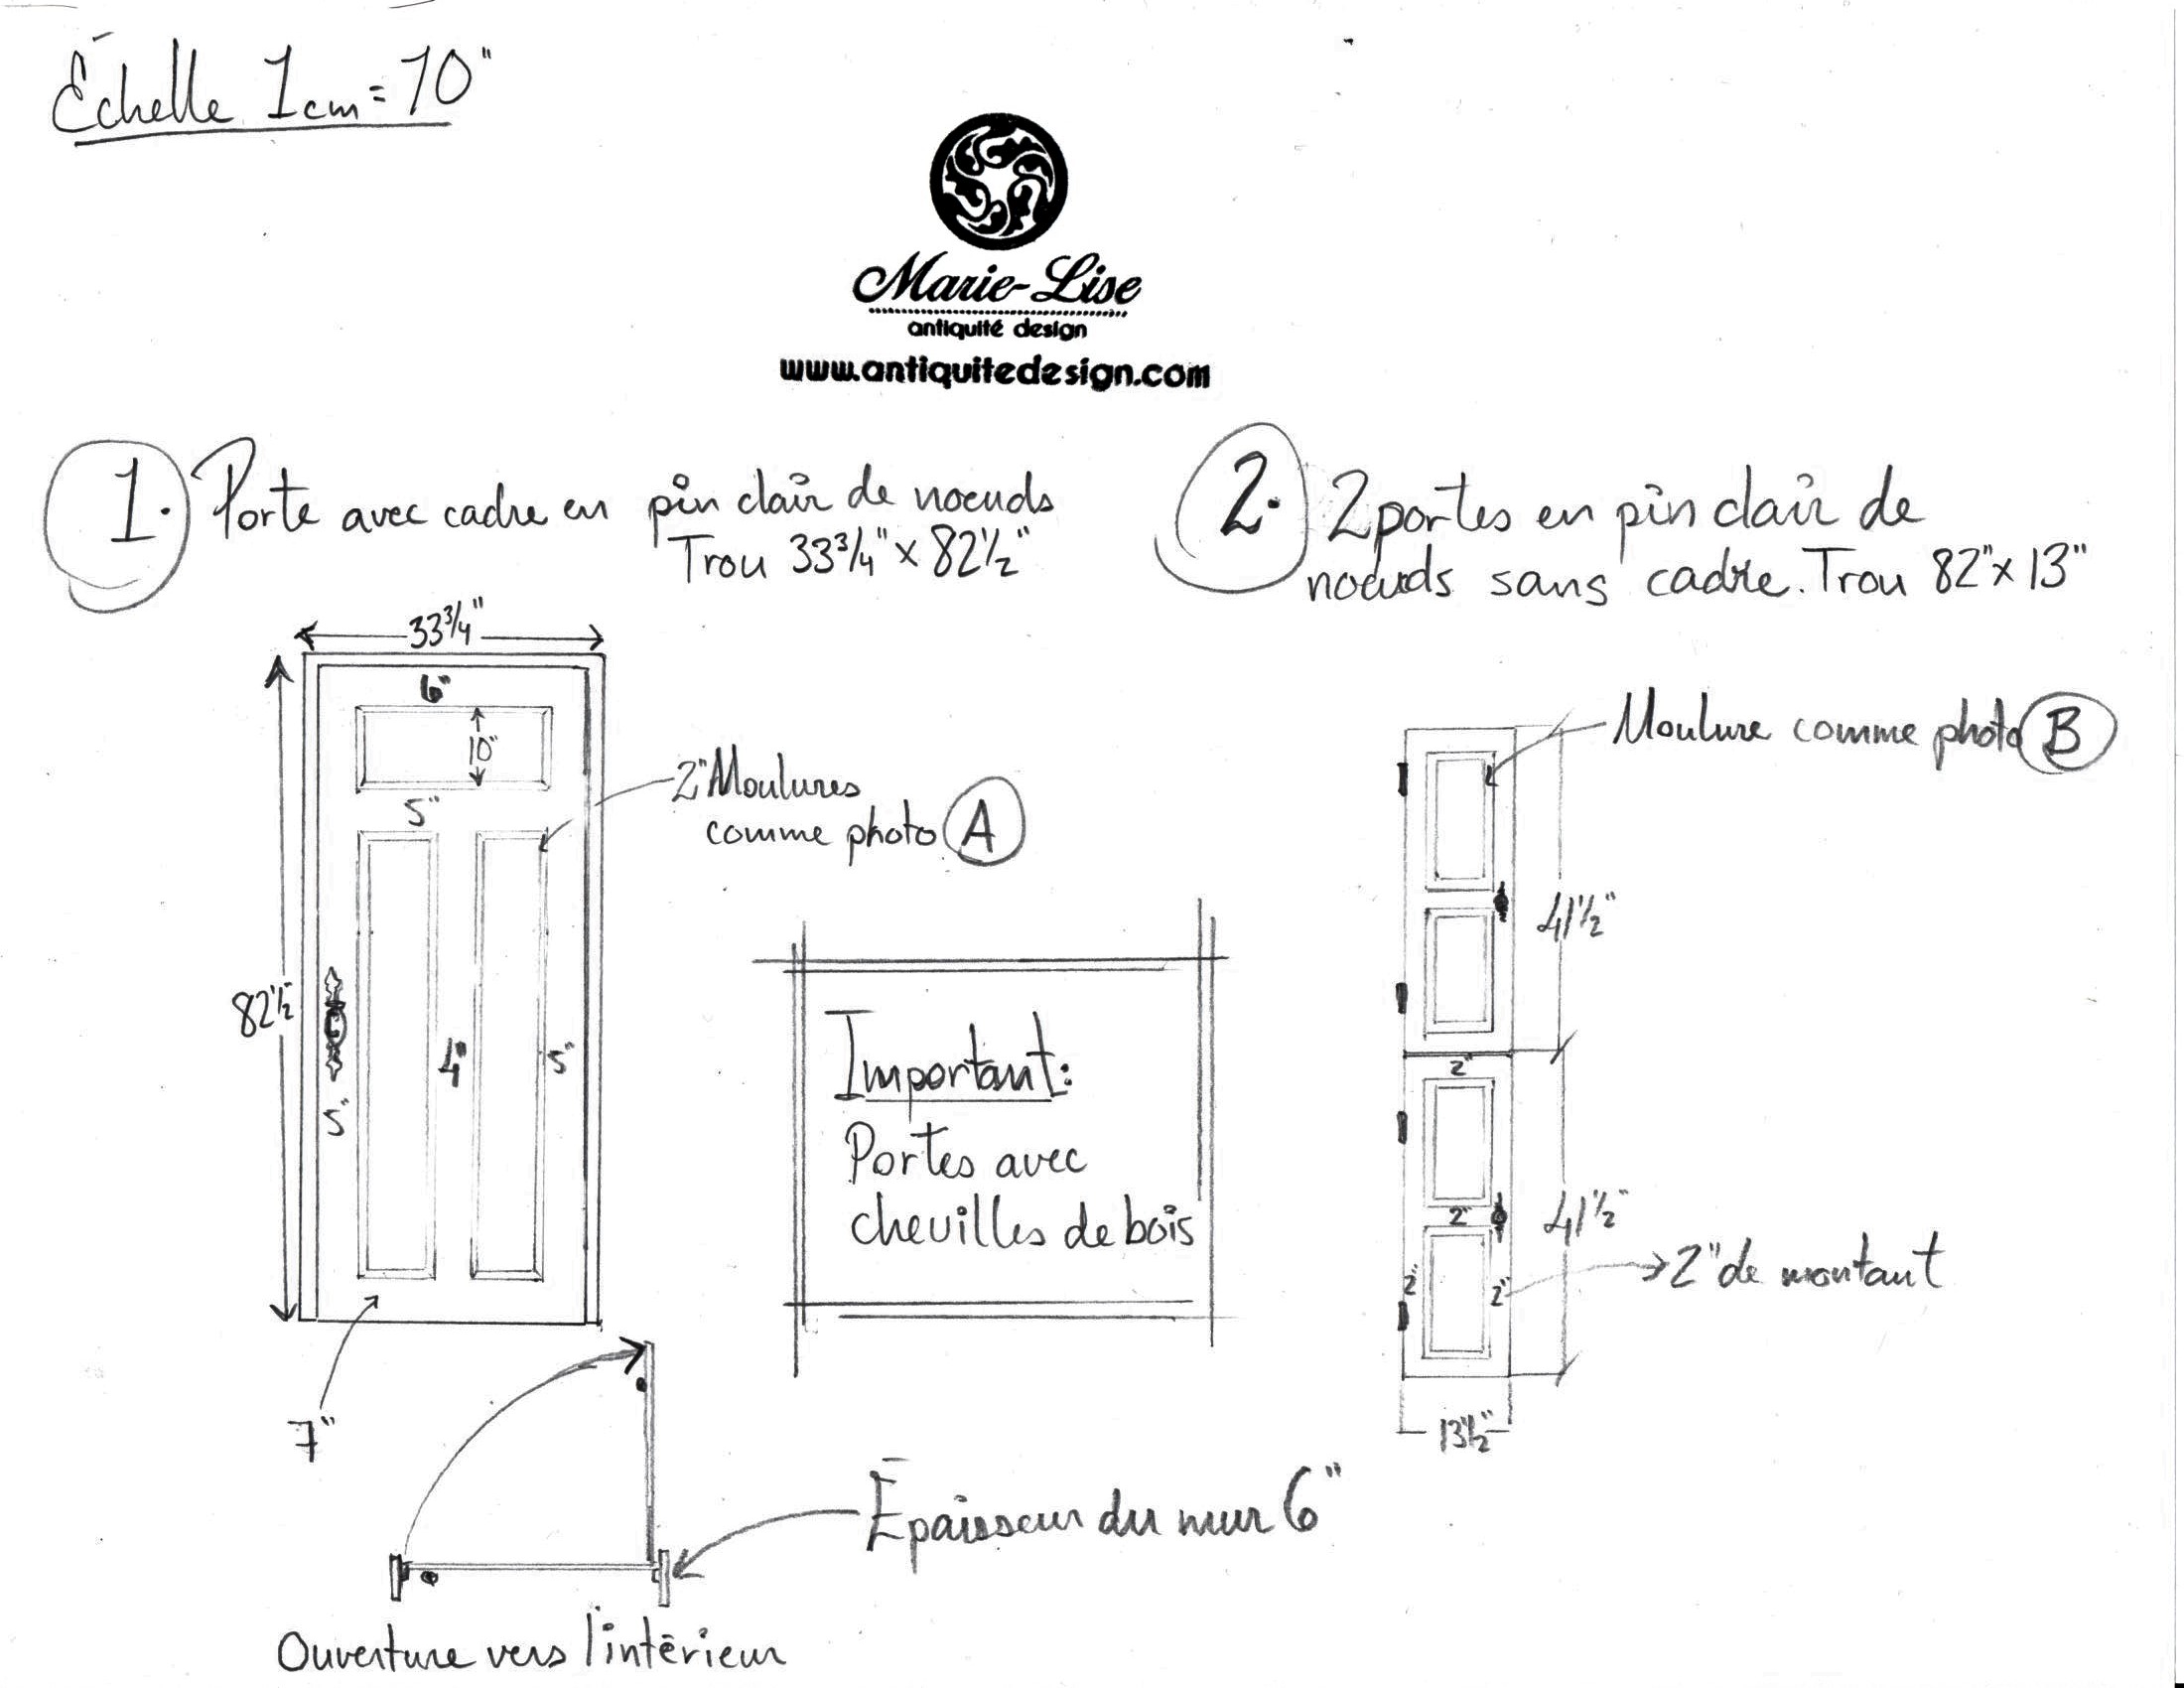 Échelle 1cm = 10"
Marie-Lise
antiquité design
www.antiquitedesign.com
1. Porte avec cadre en pin clair de noeuds
Trou 33 3/4" x 82 1/2"
33 3/4"
6"
10"
5"
2" Moulures
comme photo A
82 1/2
4"
5"
5"
7"
Important:
Portes avec
chevilles de bois
Épaisseur du mur 6"
Ouverture vers l'intérieur
2. 2 portes en pin clair de
noeuds sans cadre. Trou 82" x 13"
Moulure comme photo B
41 1/2"
2"
2"
41 1/2"
2"
2"
2" de montant
13 1/2"